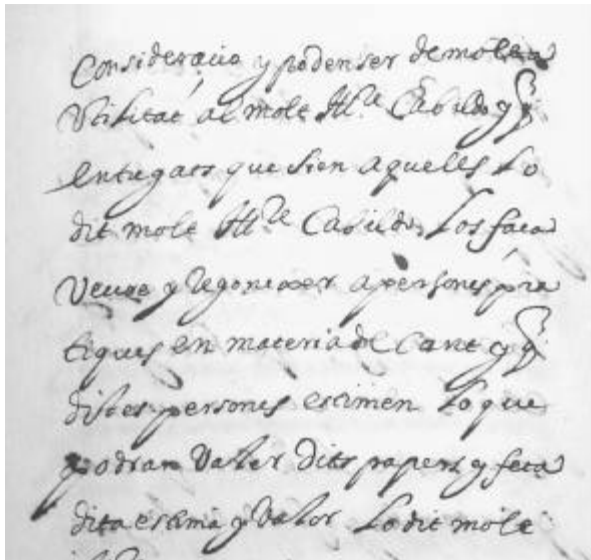 Consideracio y poden ser de molta
Utilitat al molt Ill.e Cabildo y q̃
entregats que sien aquells Lo
dit molt Ill.re Cabildo Los faca
Veure y regoneixer a persones pra
tiques en materia de Cant y q̃
dites persones estimen Lo que
podran Valer dits papers y feta
dita estima y Valor Lo dit molt